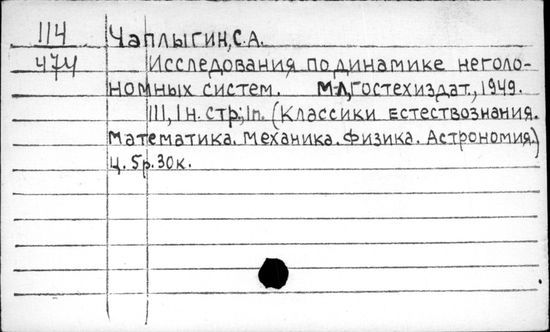 114 Чаплыгин, С.А.
474 Исследования по динамике неголо-
номных систем. М-Л, Гостехиздат, 1949.
111, 1 н. стр; 1п. (Классики естествознания.
Математика. Механика. Физика. Астрономия.)
Ц. 5р. 30к.